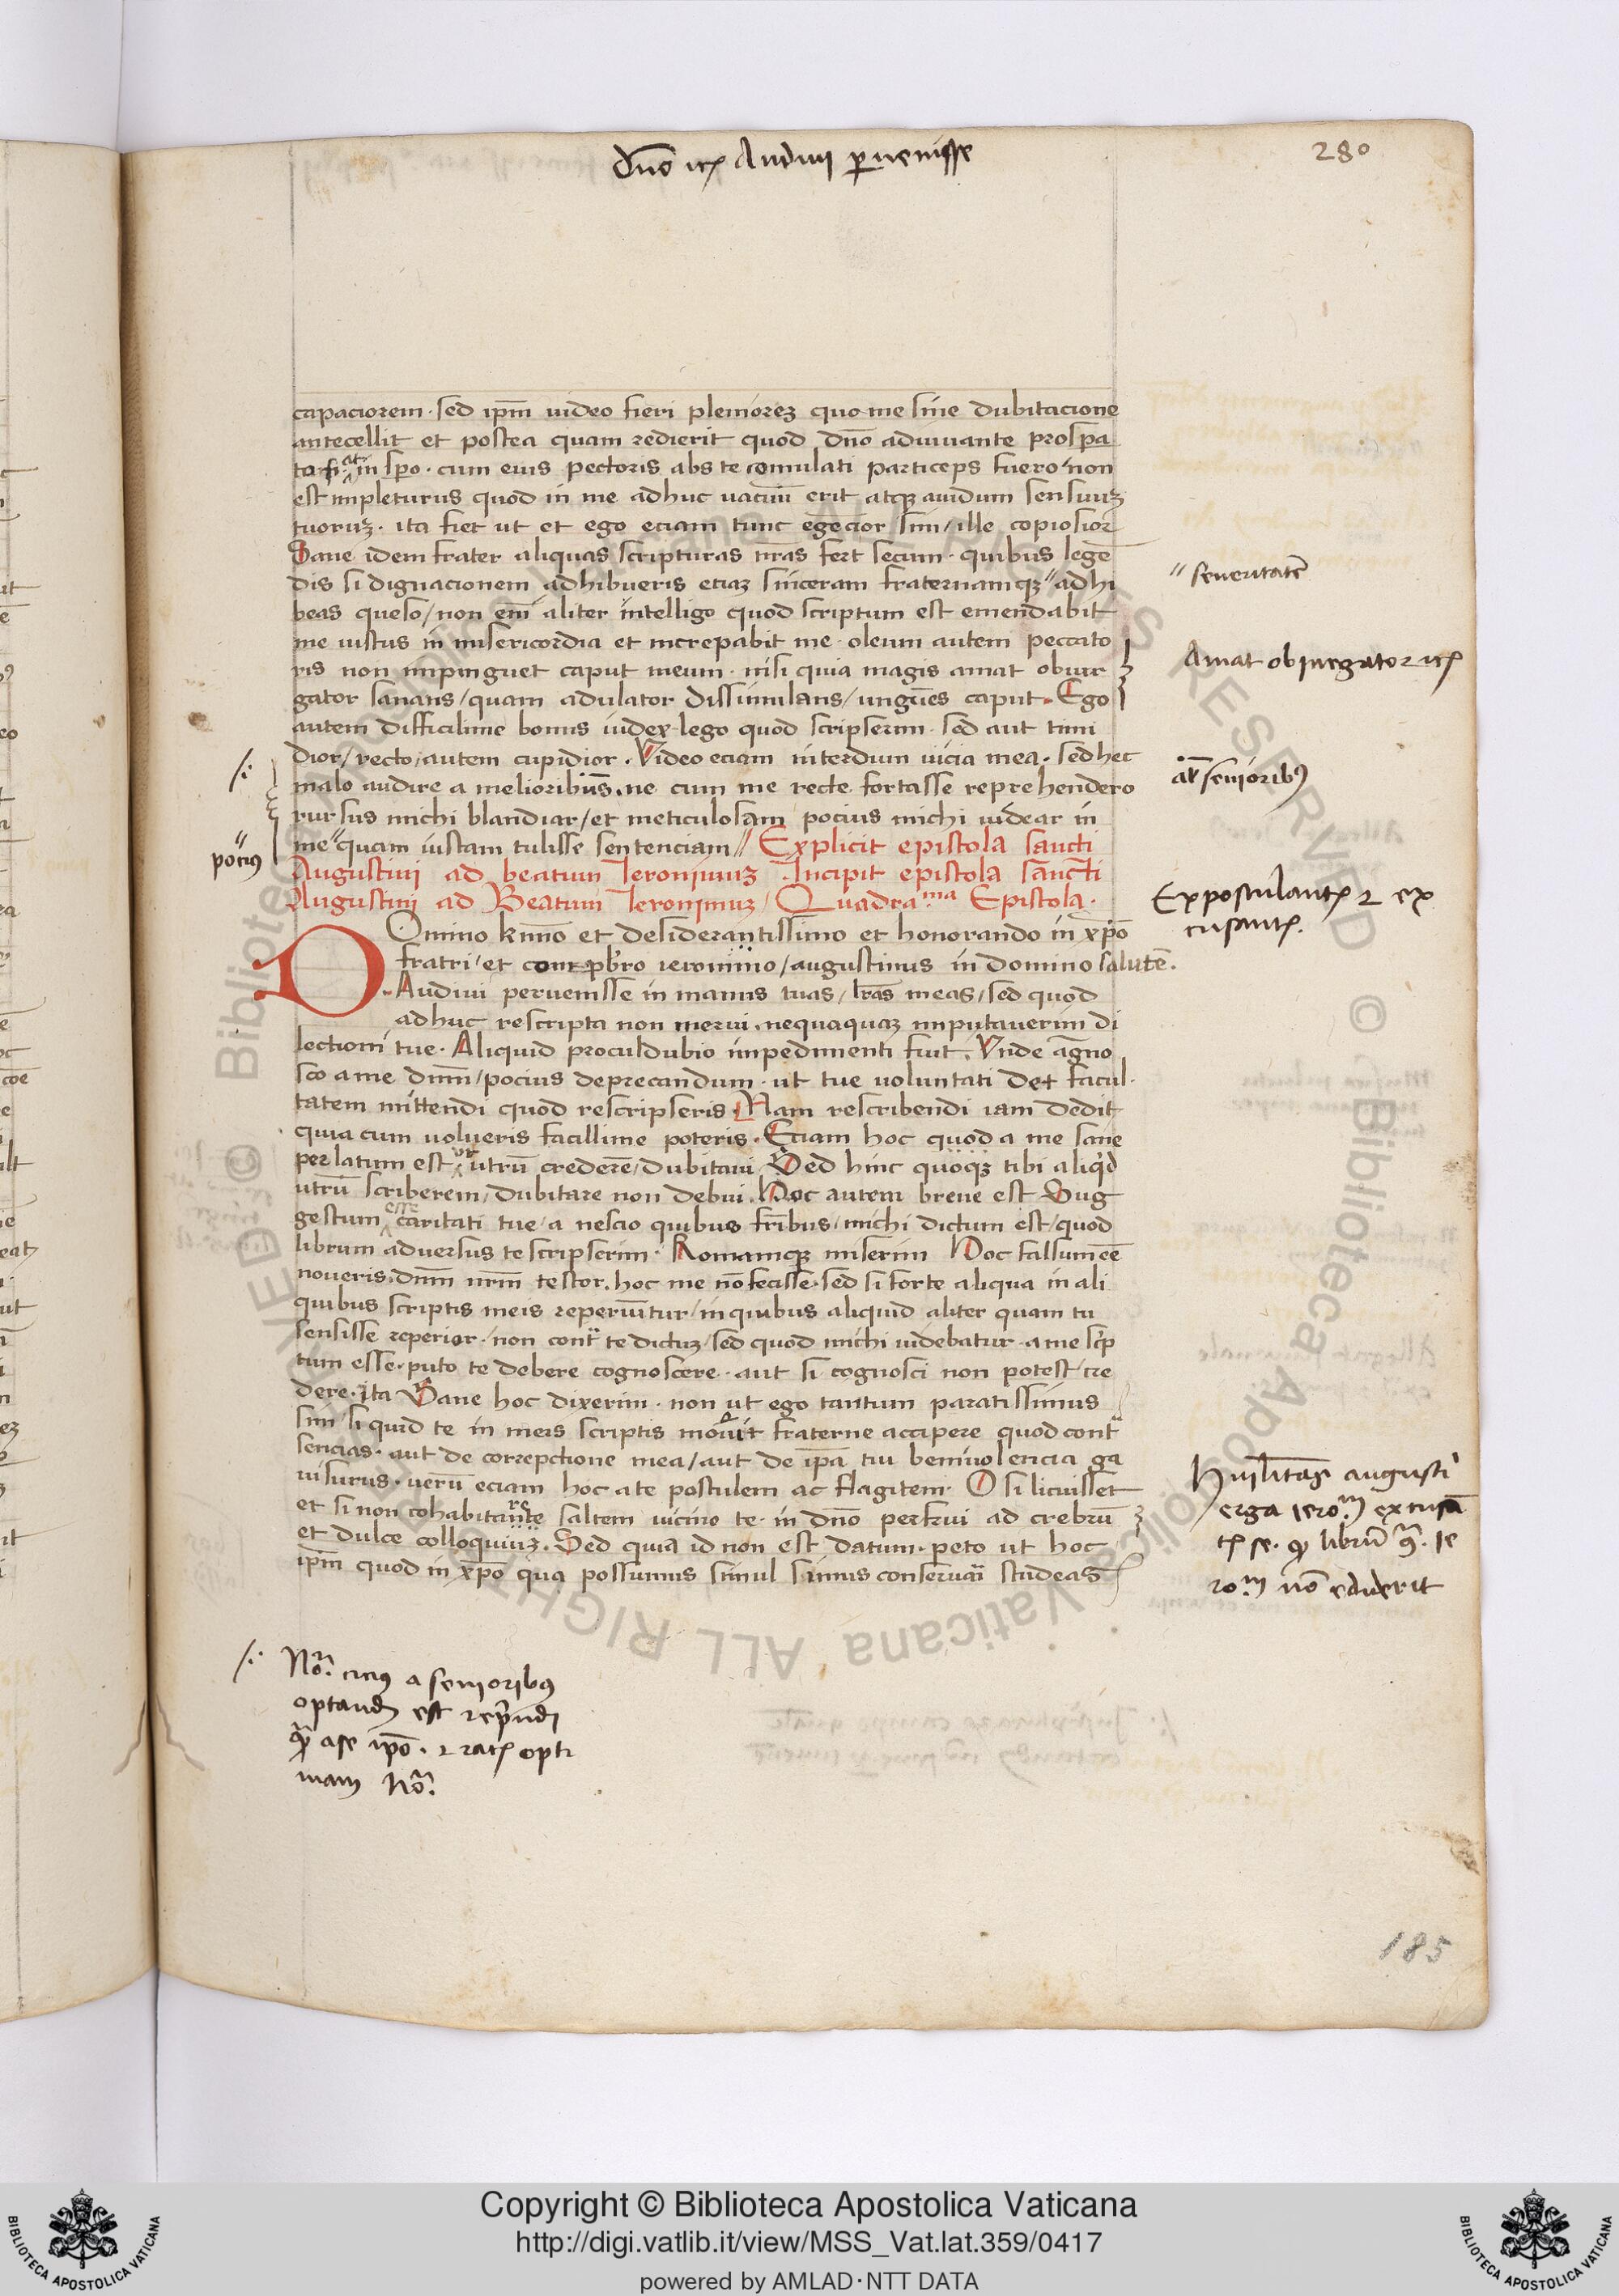 dn̄o etc̄ Audiui ꝑuenisse
280
capaciorem · sed ip̄m uideo fieri pleniorez quo me sine dubitacione
antecellit et postea quam redierit quod dn̄o adiuuante prospa
in spo · cum eius pectoris abs te comulati particeps fuero / non
est impleturus quod in me adhuc uacuū erit atqꝫ auidum sensuuꝫ
tuoruꝫ · ita fiet ut et ego eciam tunc egecior sim / ille copiosior
Sane idem frater aliquas scripturas nr̄as fert secum · quibus legē
dis si dignacionem adhibueris eciaꝫ sinceram fraternamqꝫ " adhi
beas queso / non em̄ aliter intelligo quod scriptum est emendabit
me iustus in misericordia et increpabit me · oleum autem peccato
ris non impinguet caput meum · nisi quia magis amat obiur
gator sanans / quam adulator dissimulans / ungue᷒s caput · Ego
autem difficilime bonus iudex lego quod scripserim · sed aut timi
dior / recto / autem cupidior · Video eciam interdum uicia mea · sed hec
malo audire a melioribus · ne cum me recte fortasse reprehendero
rursus michi blandiar / et meticulosam pocius michi uidear in
me " quam iustam tulisse sentenciam // Explicit epistola sancti
Augustini ad beatum Ieronimuꝫ Incipit epistola sancti
Augustini ad Beatum Ieronimuꝫ / Quadra.ma Epistola ·
Omino kn̄mo et desiderantissimo et honorando in xp̄o
fratri / et conꝑsbr̄o ieronimo / augustinus in domino salutē .
D · Audiui peruenisse in manus tuas / lr̄as meas / sed quod
adhuc rescripta non merui · nequaquaꝫ imputauerim di
lectioni tue · Aliquid proculdubio impedimenti fuit · Vnde agno
sco a me dn̄m / pocius deprecandum · ut tue uoluntati det facul ·
tatem mittendi quod rescripseris · Nam rescribendi iam dedit
quia cum uolueris facillime poteris · Eciam hoc quod a me sane
perlatum est utrū crederē / dubitaui / Sed hinc quoqꝫ tibi aliq̇d
utrū scriberem / dubitare non debui · Hoc autem breue est Sug
gestum esse caritati tue / a nescio quibus fr̄ibus / michi dictum est / quod
librum aduersus te scripserim · Romamqꝫ miserim Hoc falsum eē
noueris · dn̄m nr̄m testor · hoc me nō fecisse · sed si forte aliqua in ali
quibus scriptis meis reperiūtur / in quibus aliquid aliter quam tu
sensisse reperior · non contᵃ te dictuꝫ / sed quod michi uidebatur · a me sc̄p
tum esse · puto te debere cognoscere · aut si cognosci non potest / cre
dere · ita Sane hoc dixerim · non ut ego tantum paratissimus
sim / si quid te in meis scriptis mouit fraterne accipere quod contᵃ
sencias · aut de correpctione mea / aut de ip̄a tui beniuolencia ga
uisurus · uerū eciam hoc a te postulem ac flagitem · O si licuisset
et si non cohabitante saltem uicino te · in dn̄o perfrui ad crebrū
et dulce colloquiuꝫ · Sed quia id non est datum · peto ut hoc
ip̄m quod in xp̄o qua possumus simul simus conseruari studeas
" seueritatē
Amat obiurgator etc̄
al̄ senioribꝰ
" pociꝰ
Expostulantꝭ et ex
cusantꝭ .
Humilitas augusti
erga iero.m excusā
tꝭ se · ꝙ librū 9ᵃ · Ie
ro.m nō ediderit
/: Nō. ciciꝰ a senioribꝰ
optandꝫ est rep̄ndi
qᵃ a se ip̄o · et rac̄ꝫ opti
mam Nō.
185
Copyright © Biblioteca Apostolica Vaticana
http://digi.vatlib.it/view/MSS_Vat.lat.359/0417
powered by AMLAD·NTT DATA
BIBLIOTECA APOSTOLICA VATICANA
BIBLIOTECA APOSTOLICA VATICANA